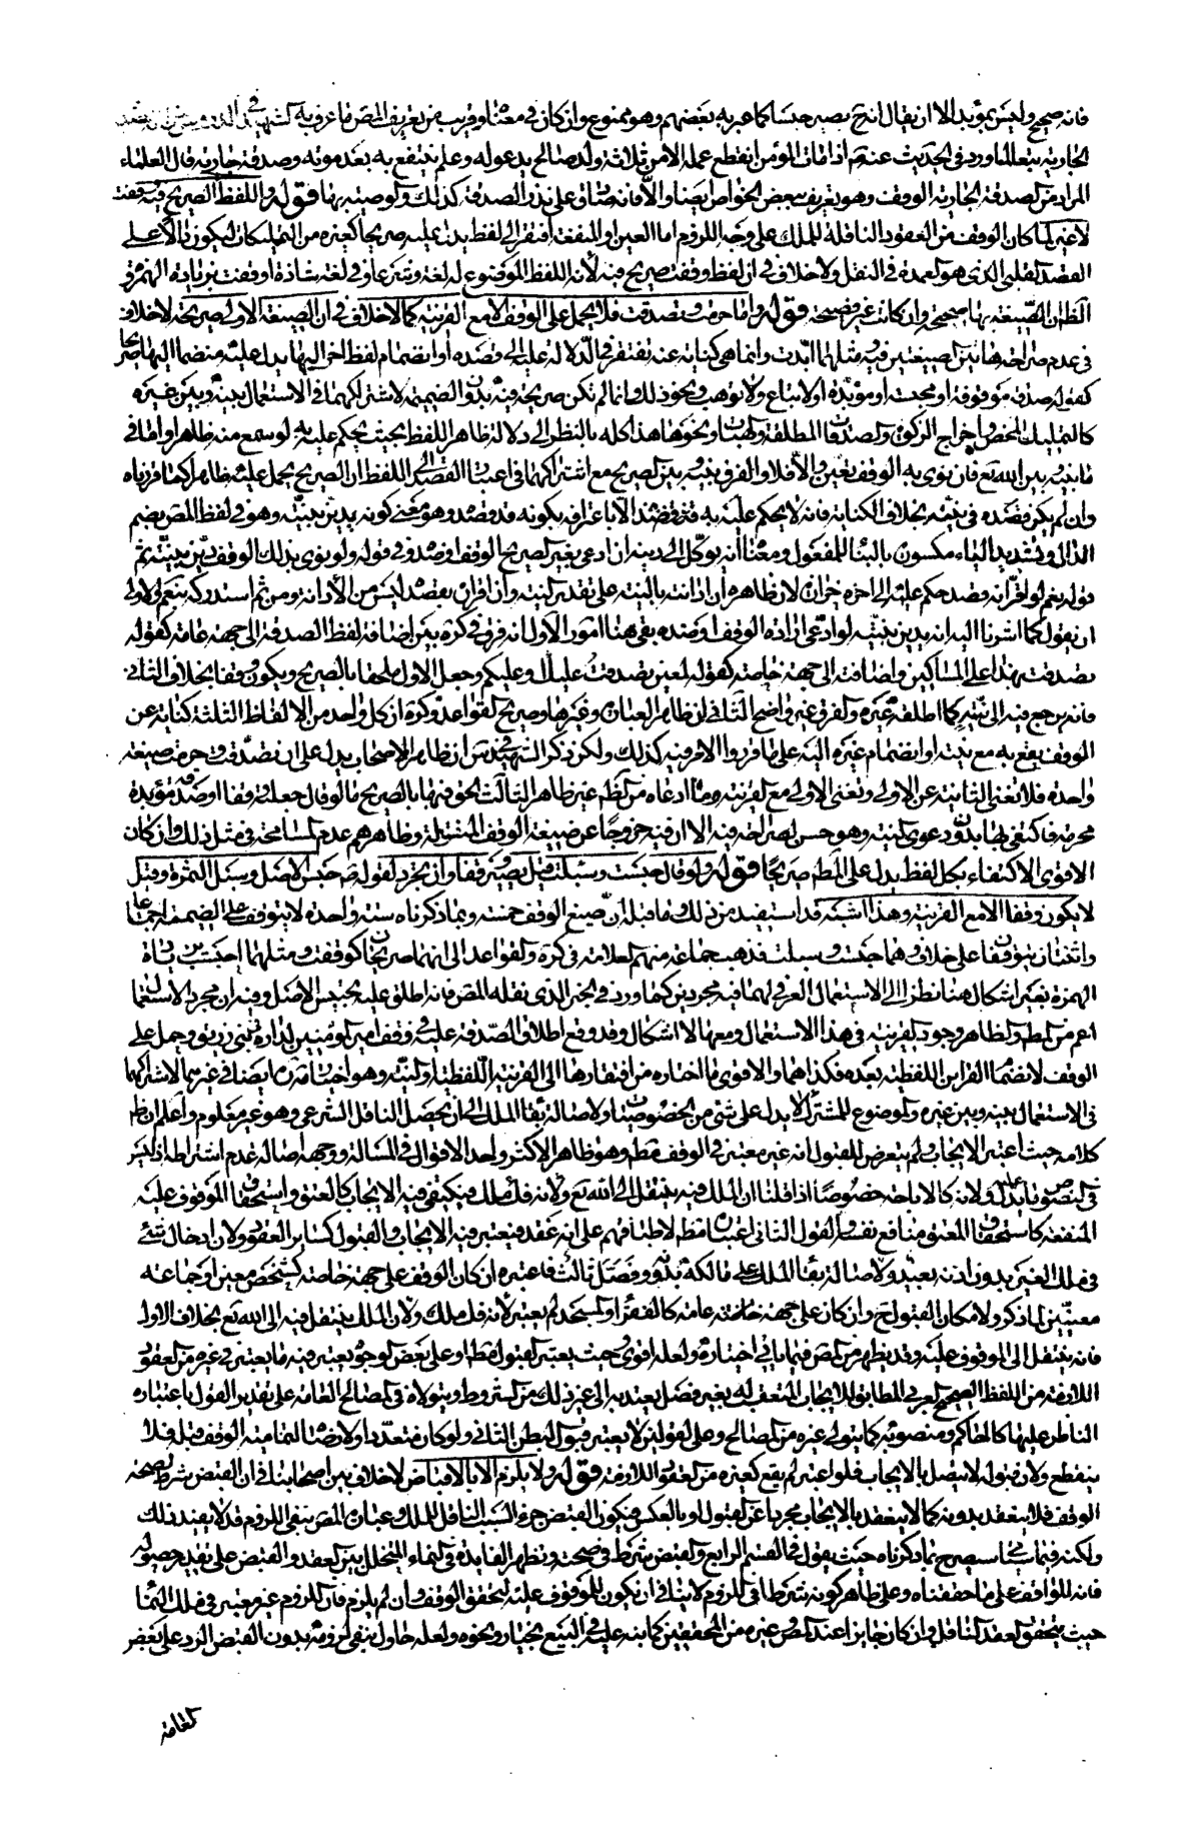 فانه صحيح وليس بمؤبد الا ان يقال انه ح يصير حبسا كما عبر به بعضهم وهو ممنوع وان كان في معناه وقريب من تعريف المص ما عرفه به
الجارية تبعا لما ورد في الحديث عنهم اذا مات المؤمن انقطع عمله الا من ثلاثة ولد صالح يدعو له وعلم ينتفع به بعد موته وصدقة جارية قال العلماء
المراد من الصدقة الجارية الوقف وهو تعريف ببعض الخواص ايضا والا فانه صادق على نذر الصدقة كذلك والوصية بها قوله واللفظ الصريح فيه وقفت
لا غير لما كان الوقف من العقود الناقلة للملك على وجه اللزوم اما العين او المنفعة افتقر الى لفظ يدل عليه صريحا كغيره من التمليكات ليكون دالا على
القصد القلبي الذي هو العمدة في النقل ولا خلاف في ان لفظ وقفت صريح فيه لانه اللفظ الموضوع له لغة وشرعا وفي لغة شاذة اوقفت بزيادة الهمزة و
الظ ان الصيغة بها صحيحة وان كانت غير فصيحة قوله واما حرمت وتصدقت فلا يحمل على الوقف الا مع القرينة كما لا خلاف في ان الصيغة الاولى صريحة لا خلاف
في عدم صراحة هاتين الصيغتين فيه ومثلهما ابدت وانما هي كناية عنه تفتقر في الدلالة عليه الى قصده او انضمام لفظ اخر اليها يدل عليه منضما اليها صريحا
كقوله صدقة موقوفة او محبسة او مؤبدة او لا تباع ولا توهب ونحو ذلك وانما لم تكن صريحة فيه بدون الضميمة لاشتراكها في الاستعمال بينه وبين غيره
كالتمليك المحض واخراج الزكوة والصدقات المطلقة والهبات ونحوها هذا كله بالنظر الى دلالة ظاهر اللفظ بحيث يحكم عليه به لو سمع منه ظاهرا واما في
ما بينه وبين الله تع فان نوى به الوقف تعين والا فلا والفرق بينه وبين الصريح مع اشتراكهما في اعتبار القصد الى اللفظ ان الصريح يحمل عليه ظاهرا كما قررناه
وان لم يكن قصده في نيته بخلاف الكناية فانه لا يحكم عليه به قصد الا باعترافه بكونه قد قصده وهو معنى كونه يدين بنيته وهو في لفظ المص بضم
الدال وتشديد الياء مكسورة بالبناء للمفعول ومعناه انه يوكل الى دينه ان ادعى بغير الصريح الوقف او ضده وفي قوله ولو نوى بذلك الوقف دين بنيته ثم
قوله نعم لو اقر انه قصد حكم عليه الى اخره خزازة لان ظاهره ان ادانته بالنية على تقدير النية وان اقراره بقصده ليس من الادانة ومن ثم استدركه بنعم والاولى
ان يقول كما اشرنا اليه انه يدين بنيته لو ادعى ارادة الوقف او ضده بقي هنا امور الاول انه فرق في كرة بين اضافة لفظ الصدقة الى جهة عامة كقوله
تصدقت بهذا على المساكين واضافته الى جهة خاصة كقوله لمعين تصدقت عليك او عليكم وجعل الاول ملحقا بالصريح ويكون وقفا بخلاف الثاني
فانه يرجع فيه الى نيته كما اطلقه غيره والفرق غير واضح الثاني ان ظاهر العبارة وغيرها وصريح القواعد وكرة ان كل واحد من الالفاظ الثلثة كناية عن
الوقف يقع به مع نيته او انضمام غيره اليه على ما قرروا الامر فيه كذلك ولكن ذكر الشهيد في س ان ظاهر الاصحاب يدل على ان تصدقت وحرمت صيغة
واحدة فلا تغني الثانية عن الاولى وتغني الاولى مع القرينة وما ادعاه من الظ غير ظاهر الثالث الحق فيها بالصريح ما لو قال جعلته وقفا او صدقة مؤبدة
محرمة فاكتفى بها بدون دعوى النية وهو حسن لصراحته فيه الا ان فيه خروجا عن صيغة الوقف المنقولة وظاهرهم عدم المسامحة في مثل ذلك وان كان
الاقوى الاكتفاء بكل لفظ يدل على المط صريحا قوله ولو قال حبست وسبلت قيل يصير وقفا وان تجرد لقوله ص حبس الاصل وسبل الثمرة وقيل
لا يكون وقفا الا مع القرينة وهذا اشبه قد استفيد من ذلك وما قبله ان صيغ الوقف خمسة وبما ذكرناه ستة واحدة لا يتوقف على الضميمة اجماعا
واثنتان يتوقفان على خلاف وهما حبست وسبلت فذهب جماعة منهم العلامة في كرة والقواعد الى انهما صريحان كوقفت ومثلهما احبست بزيادة
الهمزة بغير اشكال هنا نظرا الى الاستعمال العرفي لهما فيه مجردين كما ورد في الخبر الذي نقله المص فانه اطلق عليه تحبيس الاصل وفيه ان مجرد الاستعمال
اعم من المط والظاهر وجود القرينة في هذا الاستعمال ومعها لا اشكال وقد وقع اطلاق الصدقة عليه في وقف امير المؤمنين لداره بني زريق وحمل على
الوقف لانضمام القراين اللفظية بعده فكذا هما والاقوى ما اختاره من افتقارها الى القرينة اللفظية او النية وهو اختياره ايضا في غيرهما لاشتراكهما
في الاستعمال بينه وبين غيره والموضوع للمشترك لا يدل على شئ من الخصوصيات ولاصالة بقاء الملك الى ان يحصل الناقل الشرعي وهو غير معلوم واعلم ان ظ
كلامه حيث اعتبر الايجاب ولم يتعرض للقبول انه غير معتبر في الوقف مطم وهو ظاهر الاكثر واحد الاقوال في المسألة ووجهه اصالة عدم اشتراطه اذ ليس
في النصوص ما يدل عليه ولانه كالاباحة خصوصا اذا قلنا ان الملك فيه ينتقل الى الله تع ولانه فك ملك فيكتفى فيه الايجاب كالعتق واستحقاق الموقوف عليه
المنفعة كاستحقاق المعتق منافع نفسه والقول الثاني اعتباره مطم لاطباقهم على انه عقد فيعتبر فيه الايجاب والقبول كساير العقود ولان ادخال شئ
في ملك الغير بدون اذنه بعيد ولاصالة بقاء الملك على مالكه بدونه وفصل ثالث فاعتبره ان كان الوقف على جهة خاصة كشخص معين او جماعة
معينين لما ذكر ولامكان القبول ح وان كان على جهة عامة كالفقراء والمسجد لم يعتبر لانه فك ملك ولان الملك ينتقل فيه الى الله تع بخلاف الاول
فانه ينتقل الى الموقوف عليه وقد يظهر من المص فيما ياتي اختياره ولعله اقوى وحيث يعتبر القبول مطم او على بعض الوجوه يعتبر فيه ما يعتبر في غيره من العقود
اللازمة من اللفظ الصحيح العربي المطابق للايجاب المتعقب له بغير فصل يعتد به الى غير ذلك من الشروط ويتولاه في المصالح العامة على تقدير القول باعتباره
الناظر عليها كالحاكم ومنصوبه كما يتولى غيره من المصالح وعلى القولين لا يعتبر قبول البطن الثاني ولو كان متعددا ولا رضاه لتمامية الوقف قبله فلا
ينقطع ولان قبوله لا يتصل بالايجاب فلو اعتبر لم يقع كغيره من العقود اللازمة قوله ولا يلزم الا بالاقباض لا خلاف بين اصحابنا في ان القبض شرط لصحة
الوقف فلا ينعقد بدونه كما لا ينعقد بالايجاب مجردا عن القبول او بالعكس فيكون القبض جزء السبب الناقل للملك وعبارة المص بنفي اللزوم قد لا تفيد ذلك
ولكنه فيما سيجئ سيصرح بما ذكرناه حيث يقول في القسم الرابع والقبض شرط في صحته وتظهر الفايدة في النماء المتخلل بين العقد والقبض على تقدير حصوله
فانه للواقف على ما حققناه وعلى ظاهر كونه شرطا في اللزوم لا ينافي ان يكون للموقوف عليه لتحقق الوقف وان لم يلزم فان اللزوم غير معتبر في ملك النماء
حيث يتحقق العقد الناقل وان كان جايزا عند المص وغيره من المحققين كما نبه عليه في البيع بخيار ونحوه ولعله حاول بنفي لزومه بدون القبض الرد على بعض
العامة